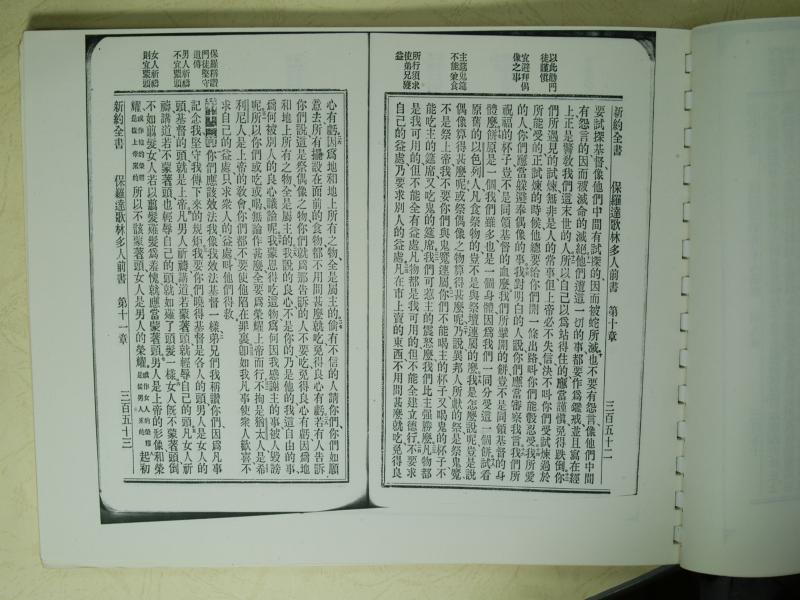 以此勸門
徒謹慎
宜避拜偶
像之事
主筵鬼筵
不能兼食
所行須求
使弟兄獲
益
新約全書 保羅達歌林多人前書 第十章 三百五十二
要試探基督像他們中間有試探的因而被蛇所滅也不要有怨言像他們中間
有怨言的因而被滅命的滅絕他們遭這一切的事都要作為鑑戒並且寫在經
上正是警教我們這末世的人所以自己以為站得住的應當謹慎免得跌倒你
們所遇見的試煉無非是人的常事但上帝必不失信決不叫你們受試煉過於
所能受的正試煉的時候他總要給你們開一條出路叫你們能彀忍受我所愛
的人你們應當躲避奉偶像的事我對明白的人說你們應當審察我言我們所
祝福的杯子豈不是同領基督的血麼我們所擘開的餅豈不是同領基督的身
體麼餅原是一個我們雖多也是一個身體因為我們一同分受這一個餅試看
原舊的以色列人凡食祭物的豈不是與祭壇連屬的麼我是怎麼說呢豈是說
偶像算得甚麼呢或祭偶像之物算得甚麼呢乃說異邦人所獻的祭是祭鬼魔
不是祭上帝我不要你們與鬼魔連屬你們不能喝主的杯子又喝鬼的杯子不
能吃主的筵席又吃鬼的筵席我們可惹主的震怒麼我們比主强勝麼凡物都
是我可用的但不能全有益處凡物都是我可用的但不能全建立德行不要求
自己的益處乃要求別人的益處凡在市上賣的東西不用問甚麼就吃免得良
保羅稱讚
門徒堅守
遺傳
男人祈禱
不宜蒙頭
女人祈禱
則宜蒙頭
心有虧因為地和地上所有之物全是屬主的倘有不信的人請你們你們如願
意去所有擺設在面前的食物都不用問甚麼就吃免得良心有虧若有人告訴
你們說這是祭偶像之物你們就為那告訴的人不要吃免得良心有虧因為地
和地上所有之物全是屬主的我說的良心不是你的乃是他的我這自由的事
為何被別人的良心議論呢我蒙恩得吃這物為何因我感謝主的事被人毀謗
呢所以你們或吃或喝無論作甚麼全要為榮耀上帝而行不拘是猶太人是希
利尼人是上帝的教會你們都不要使他陷在罪裏卽如我凡事使衆人歡喜不
求自己的益處只求衆人的益處叫他們得救
你們應該效法我像我效法基督一樣弟兄們我稱讚你們因為凡事
記念我堅守我傳下來的規矩我要你們曉得基督是各人的頭男人是女人的
頭基督的頭就是上帝凡男人祈禱講道若蒙著頭就輕辱自己的頭凡女人祈
禱講道若不蒙著頭也輕辱自己的頭就如薙了頭髮一樣女人旣不蒙著頭倒
不如剪髮女人若以剪髮薙髮為羞愧就應當蒙著頭男人是上帝的形像和榮
耀所以不該蒙著頭女人是男人的榮耀起初
新約全書 保羅達歌林多人前書 第十一章 三百五十三